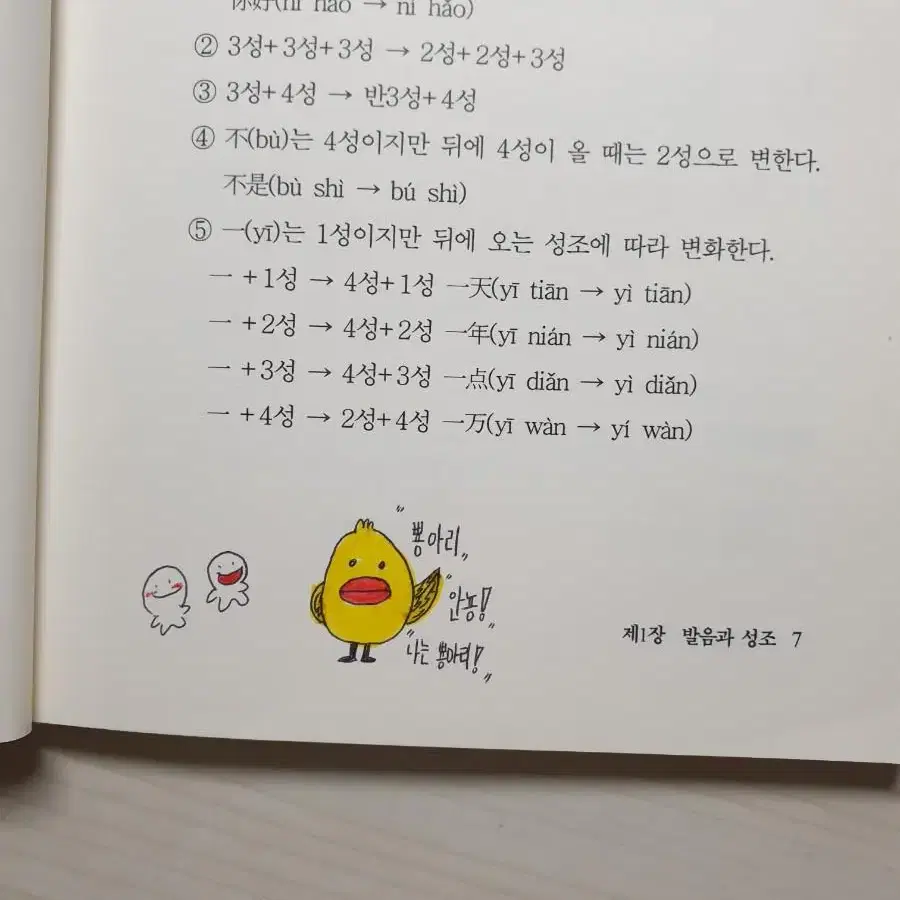 你好(nǐ hǎo → ní hǎo)
② 3성+3성+3성 → 2성+2성+3성
③ 3성+4성 → 반3성+4성
④ 不(bù)는 4성이지만 뒤에 4성이 올 때는 2성으로 변한다.
不是(bù shì → bú shì)
⑤ 一(yī)는 1성이지만 뒤에 오는 성조에 따라 변화한다.
一 +1성 → 4성+1성 一天(yī tiān → yì tiān)
一 +2성 → 4성+2성 一年(yī nián → yì nián)
一 +3성 → 4성+3성 一点(yī diǎn → yì diǎn)
一 +4성 → 2성+4성 一万(yī wàn → yí wàn)
"뽕아리"
"안뇽!"
"나는 뽕아리!"
제1장 발음과 성조 7